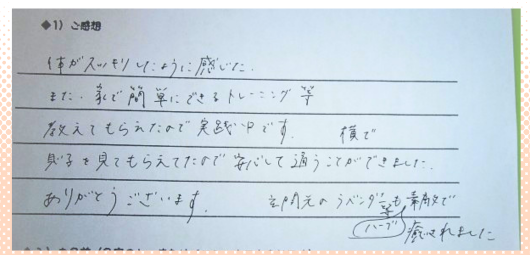 ◆1) ご感想
体がスッキリしたように感じた。
また、家で簡単にできるトレーニング等
教えてもらえたので実践中です。 横で
息子を見てもらえてたので安心して通うことができました。
ありがとうございます。 玄関元のラベンダー等も素敵で
ハーブ 癒されました